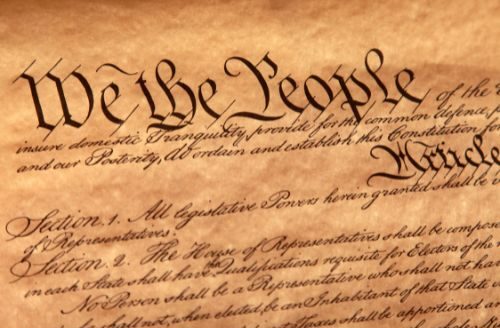 We the People of the
insure domestic Tranquility, provide for the common defence,
and our Posterity, do ordain and establish this Constitution for
Article
Section. 1. All legislative Powers herein granted shall be
of Representatives.
Section. 2. The House of Representatives shall be compos
in each State shall have Qualifications requisite for Electors of the
No Person shall be a Representative who shall not hav
shall not, when elected, be an Inhabitant of that State
shall be apportioned a